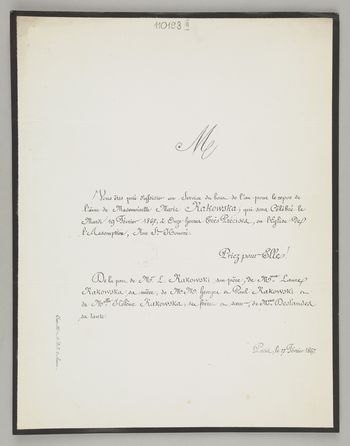 110193
M
Vous êtes prié d'assister au Service du bout de l'an pour le repos de
l'âme de Mademoiselle Marie Kakowska, qui sera Célébré le
Mardi 19 Février 1867, à Onze heures Très Précises, en l'Eglise De
l'Assomption, Rue St Honoré.
Priez pour Elle!
De la part de Mr. L. Kakowski son père, de Mme Laure
Kakowska sa mère, de MM. Georges et Paul Kakowski et
de Melle Hélène Kakowska, ses frères et sœur, de Mme Deslandes
sa tante.
Paris, le 17 Février 1867.